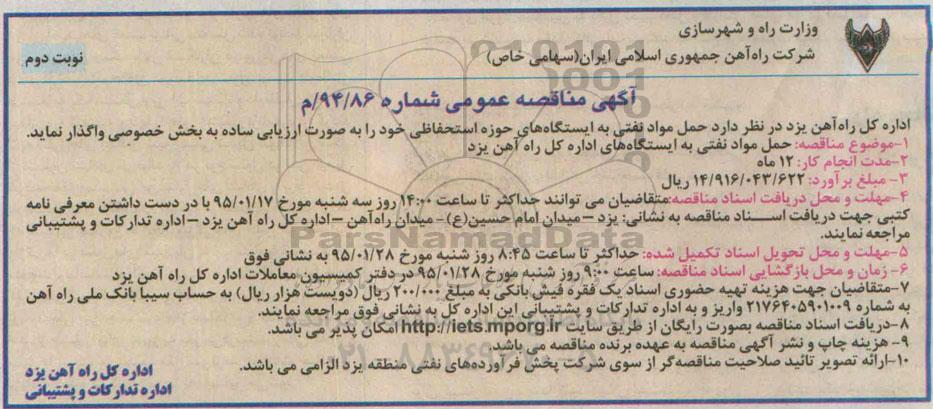 وزارت راه و شهرسازی
شرکت راه‌آهن جمهوری اسلامی ایران(سهامی خاص)
نوبت دوم
آگهی مناقصه عمومی شماره ۹۴/۸۶/م
اداره کل راه‌آهن یزد در نظر دارد حمل مواد نفتی به ایستگاه‌های حوزه استحفاظی خود را به صورت ارزیابی ساده به بخش خصوصی واگذار نماید.
۱-موضوع مناقصه: حمل مواد نفتی به ایستگاه‌های اداره کل راه آهن یزد
۲-مدت انجام کار: ۱۲ ماه
۳- مبلغ برآورد: ۱۴/۹۱۶/۰۴۳/۶۲۲ ریال
۴-مهلت و محل دریافت اسناد مناقصه:متقاضیان می توانند حداکثر تا ساعت ۱۴:۰۰ روز سه شنبه مورخ ۹۵/۰۱/۱۷ با در دست داشتن معرفی نامه
کتبی جهت دریافت اسناد مناقصه به نشانی: یزد –میدان امام حسین(ع)- میدان راه‌آهن –اداره کل راه آهن یزد –اداره تدارکات و پشتیبانی
مراجعه نمایند.
۵-مهلت و محل تحویل اسناد تکمیل شده: حداکثر تا ساعت ۸:۴۵ روز شنبه مورخ ۹۵/۰۱/۲۸ به نشانی فوق
۶- زمان و محل بازگشایی اسناد مناقصه: ساعت ۹:۰۰ روز شنبه مورخ ۹۵/۰۱/۲۸ در دفتر کمیسیون معاملات اداره کل راه آهن یزد
۷-متقاضیان جهت هزینه تهیه حضوری اسناد یک فقره فیش بانکی به مبلغ ۲۰۰/۰۰۰ ریال (دویست هزار ریال) به حساب سیبا بانک ملی راه آهن
به شماره ۲۱۷۶۴۰۵۹۰۱۰۰۹ واریز و به اداره تدارکات و پشتیبانی این اداره کل به نشانی فوق مراجعه نمایند.
۸-دریافت اسناد مناقصه بصورت رایگان از طریق سایت http://iets.mporg.ir امکان پذیر می باشد.
۹- هزینه چاپ و نشر آگهی مناقصه به عهده برنده مناقصه می باشد.
۱۰-ارائه تصویر تائید صلاحیت مناقصه‌گر از سوی شرکت پخش فرآورده‌های نفتی منطقه یزد الزامی می باشد.
اداره کل راه آهن یزد
اداره تدارکات و پشتیبانی
ParsNamadData